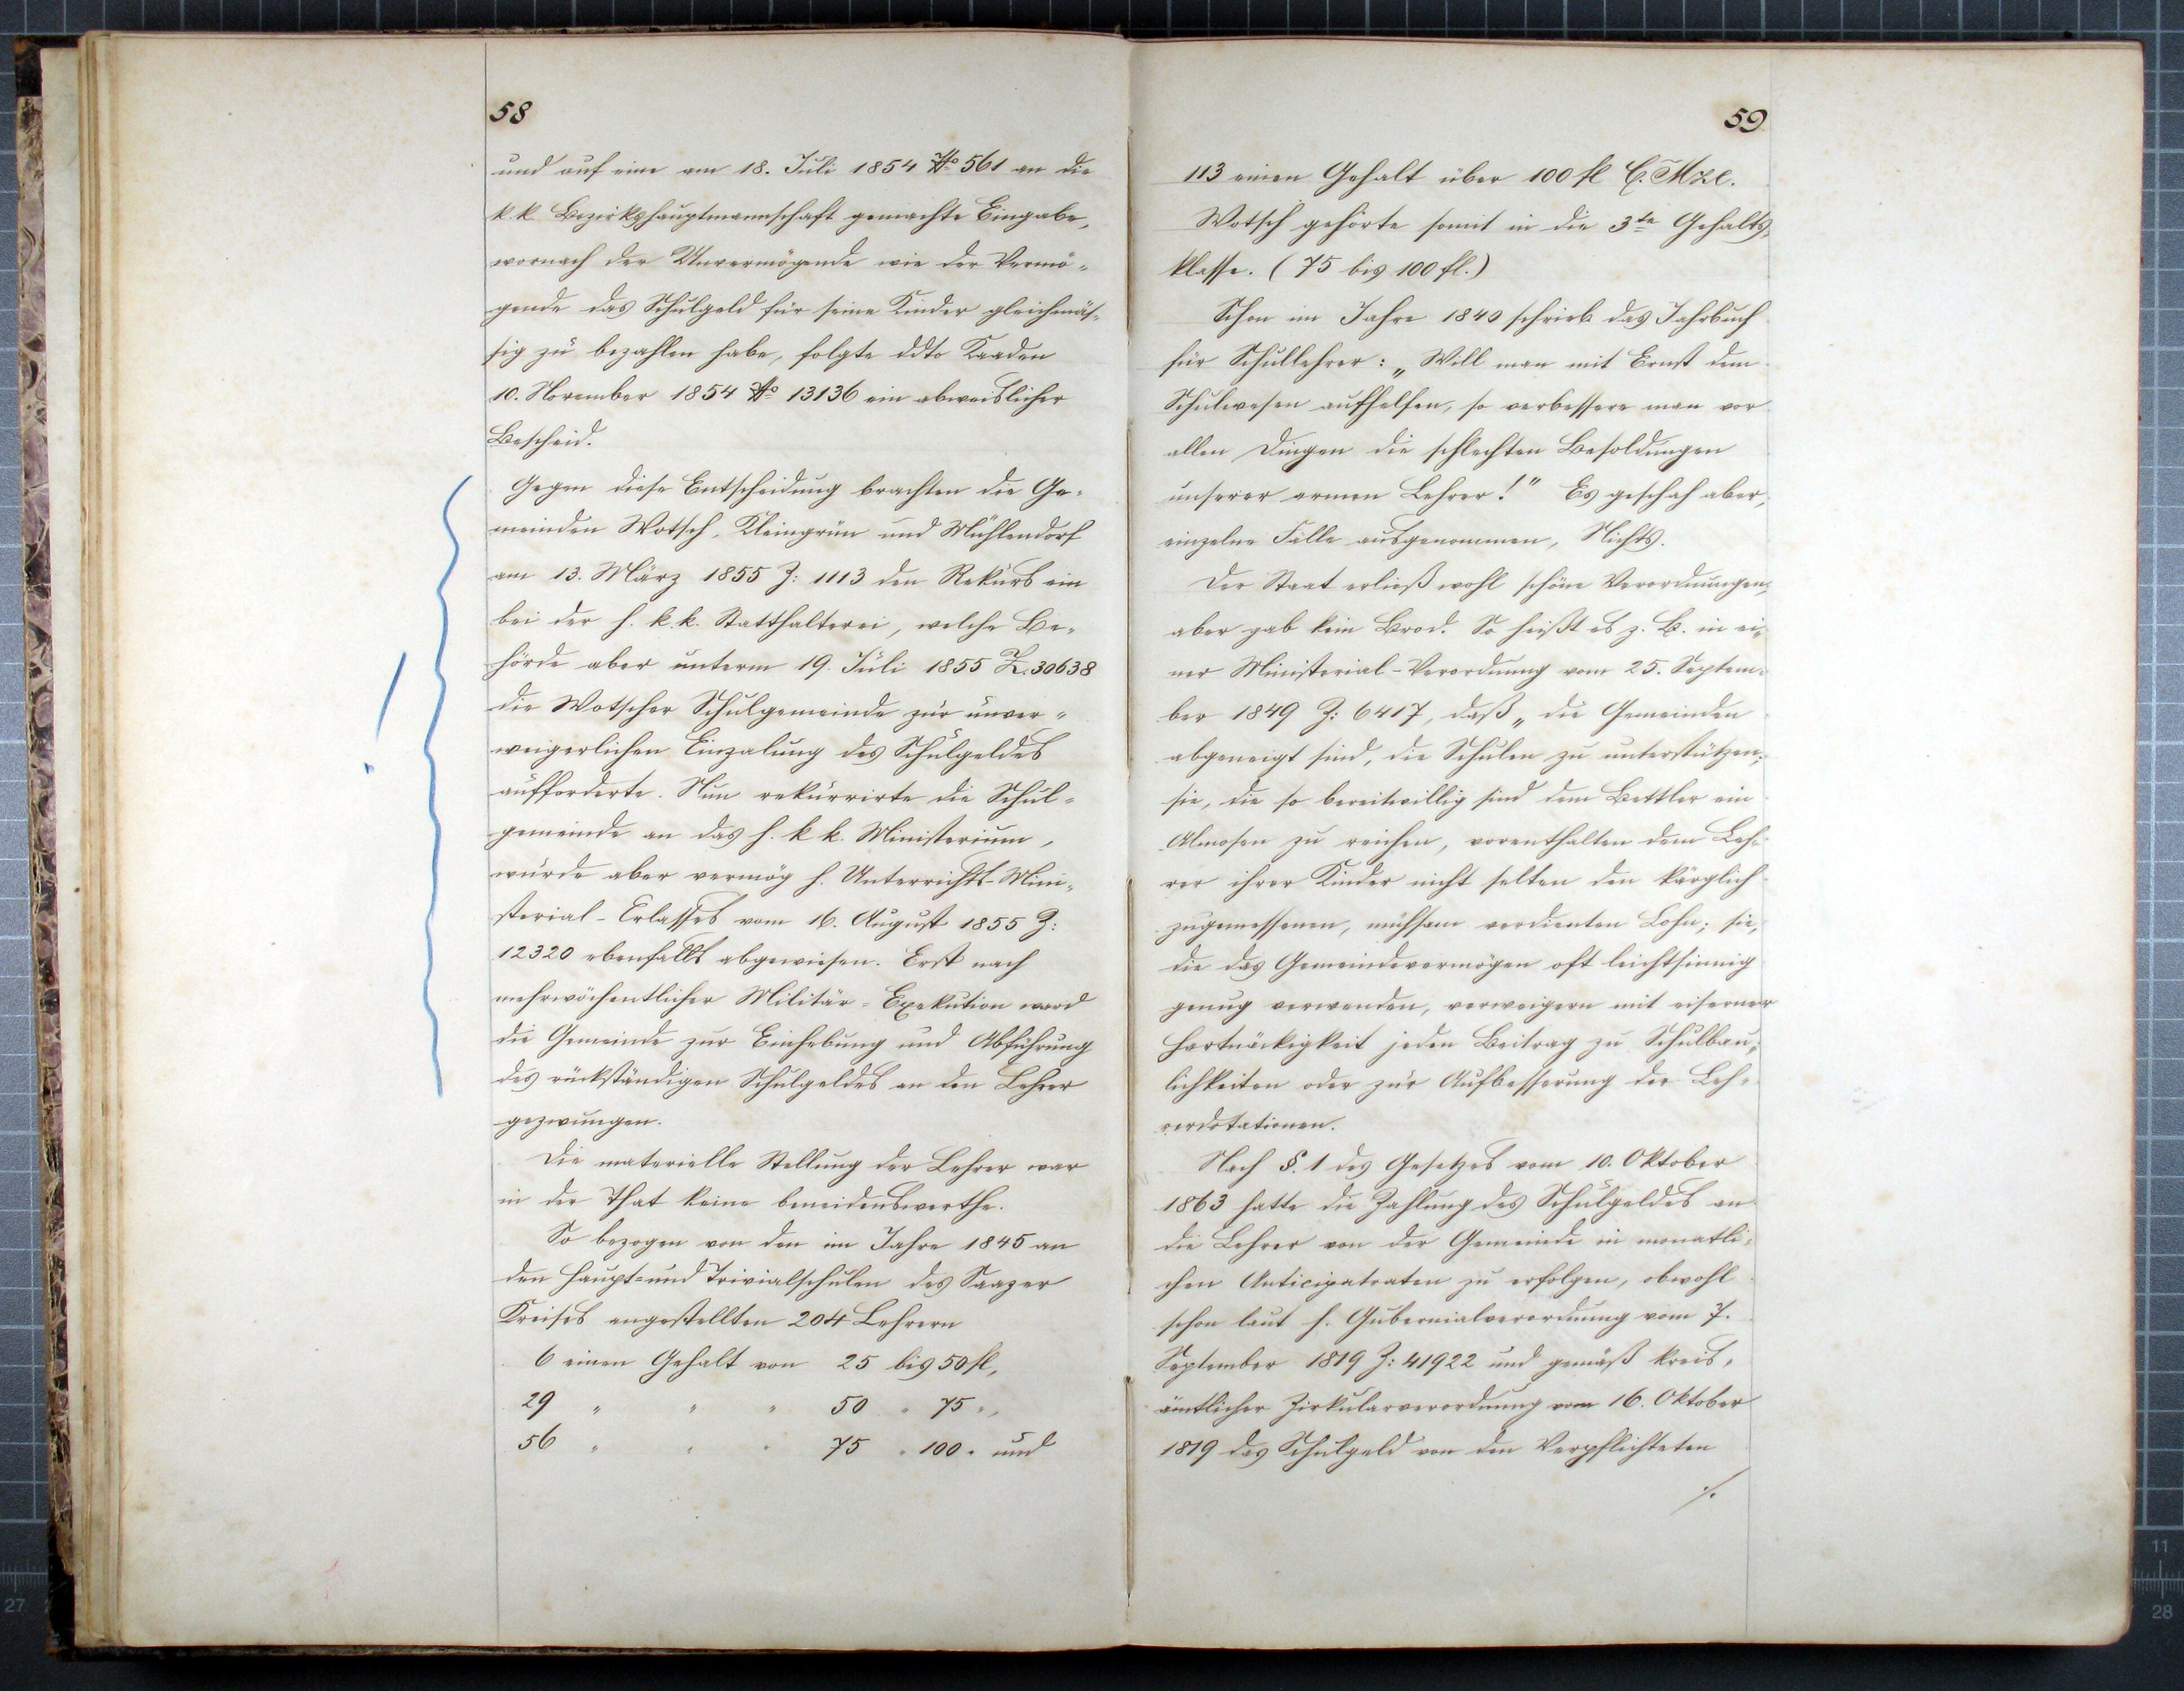 58
und auf eine am 18. Juli 1854 No 561 an die
k. k. Bezirkshauptmannschaft gemachte Eingabe,
wornach der Unvermögende wie der Vermö-
gende das Schulgeld für seine Kinder gleichmäs-
sig zu bezahlen habe, folgte ddto Kaaden
10. November 1854 No 13136 ein abweislicher
Bescheid.
Gegen diese Entscheidung brachten die Ge-
meinden Wotsch, Kleingrün und Mühlendorf
am 13. März 1855 Z: 1113 den Rekurs ein
bei der h. k. k. Statthalterei, welche Be-
hörde aber unterm 19. Juli 1855 Z. 30638
die Wotscher Schulgemeinde zur unver-
weigerlichen Einzalung des Schulgeldes
aufforderte. Nun rekurrirte die Schul-
gemeinde an das h. k. k. Ministerium,
wurde aber vermög h. Unterrichts-Mini-
sterial-Erlasses vom 16. August 1855 Z:
12320 ebenfalls abgewiesen. Erst nach
mehrwöchentlicher Militär-Exekution ward
die Gemeinde zur Einhebung und Abführung
des rückständigen Schulgeldes an den Lehrer
gezwungen.
Die materielle Stellung der Lehrer war
in der That keine beneidenswerthe.
So bezogen von den im Jahre 1845 an
den Haupt- und Trivialschulen des Saazer
Kreises angestellten 204 Lehrern
6 einen Gehalt von 25 bis 50 fl,
29 " " " 50 " 75 ",
56 " " " 75 " 100 " und
!
59
113 einen Gehalt über 100 fl C. Mze.
Wotsch gehörte somit in die 3te Gehalts-
klasse. (75 bis 100 fl.)
Schon im Jahre 1840 schrieb das Jahrbuch
für Schullehrer: „Will man mit Ernst dem
Schulwesen aufhelfen, so verbessere man vor
allen Dingen die schlechten Besoldungen
unserer armen Lehrer!" Es geschah aber,
einzelne Fälle ausgenommen, Nichts.
Der Staat erließ wohl schöne Verordnungen,
aber gab kein Brod. So heißt es z. B. in ei-
ner Ministerial-Verordnung vom 25. Septem-
ber 1849 Z: 6417, daß „die Gemeinden
abgeneigt sind, die Schulen zu unterstützen;
sie, die so bereitwillig sind dem Bettler ein
Almosen zu reichen, vorenthalten dem Leh-
rer ihrer Kinder nicht selten den kärglich
zugemessenen, mühsam verdienten Lohn; sie,
die das Gemeindevermögen oft leichtsinnig
genug verwenden, verweigern mit eiserner
Hartnäckigkeit jeden Beitrag zu Schulbau-
lichkeiten oder zur Aufbesserung der Leh-
rerdotationen.
Nach §. 1 des Gesetzes vom 10. Oktober
1863 hatte die Zahlung des Schulgeldes an
die Lehrer von der Gemeinde in monatli-
chen Anticipatraten zu erfolgen, obwohl
schon laut h. Gubernialverordnung vom 7.
September 1819 Z: 41922 und gemäß kreis-
ämtlicher Zirkularverordnung vom 16. Oktober
1819 das Schulgeld von den Verpflichteten
./.